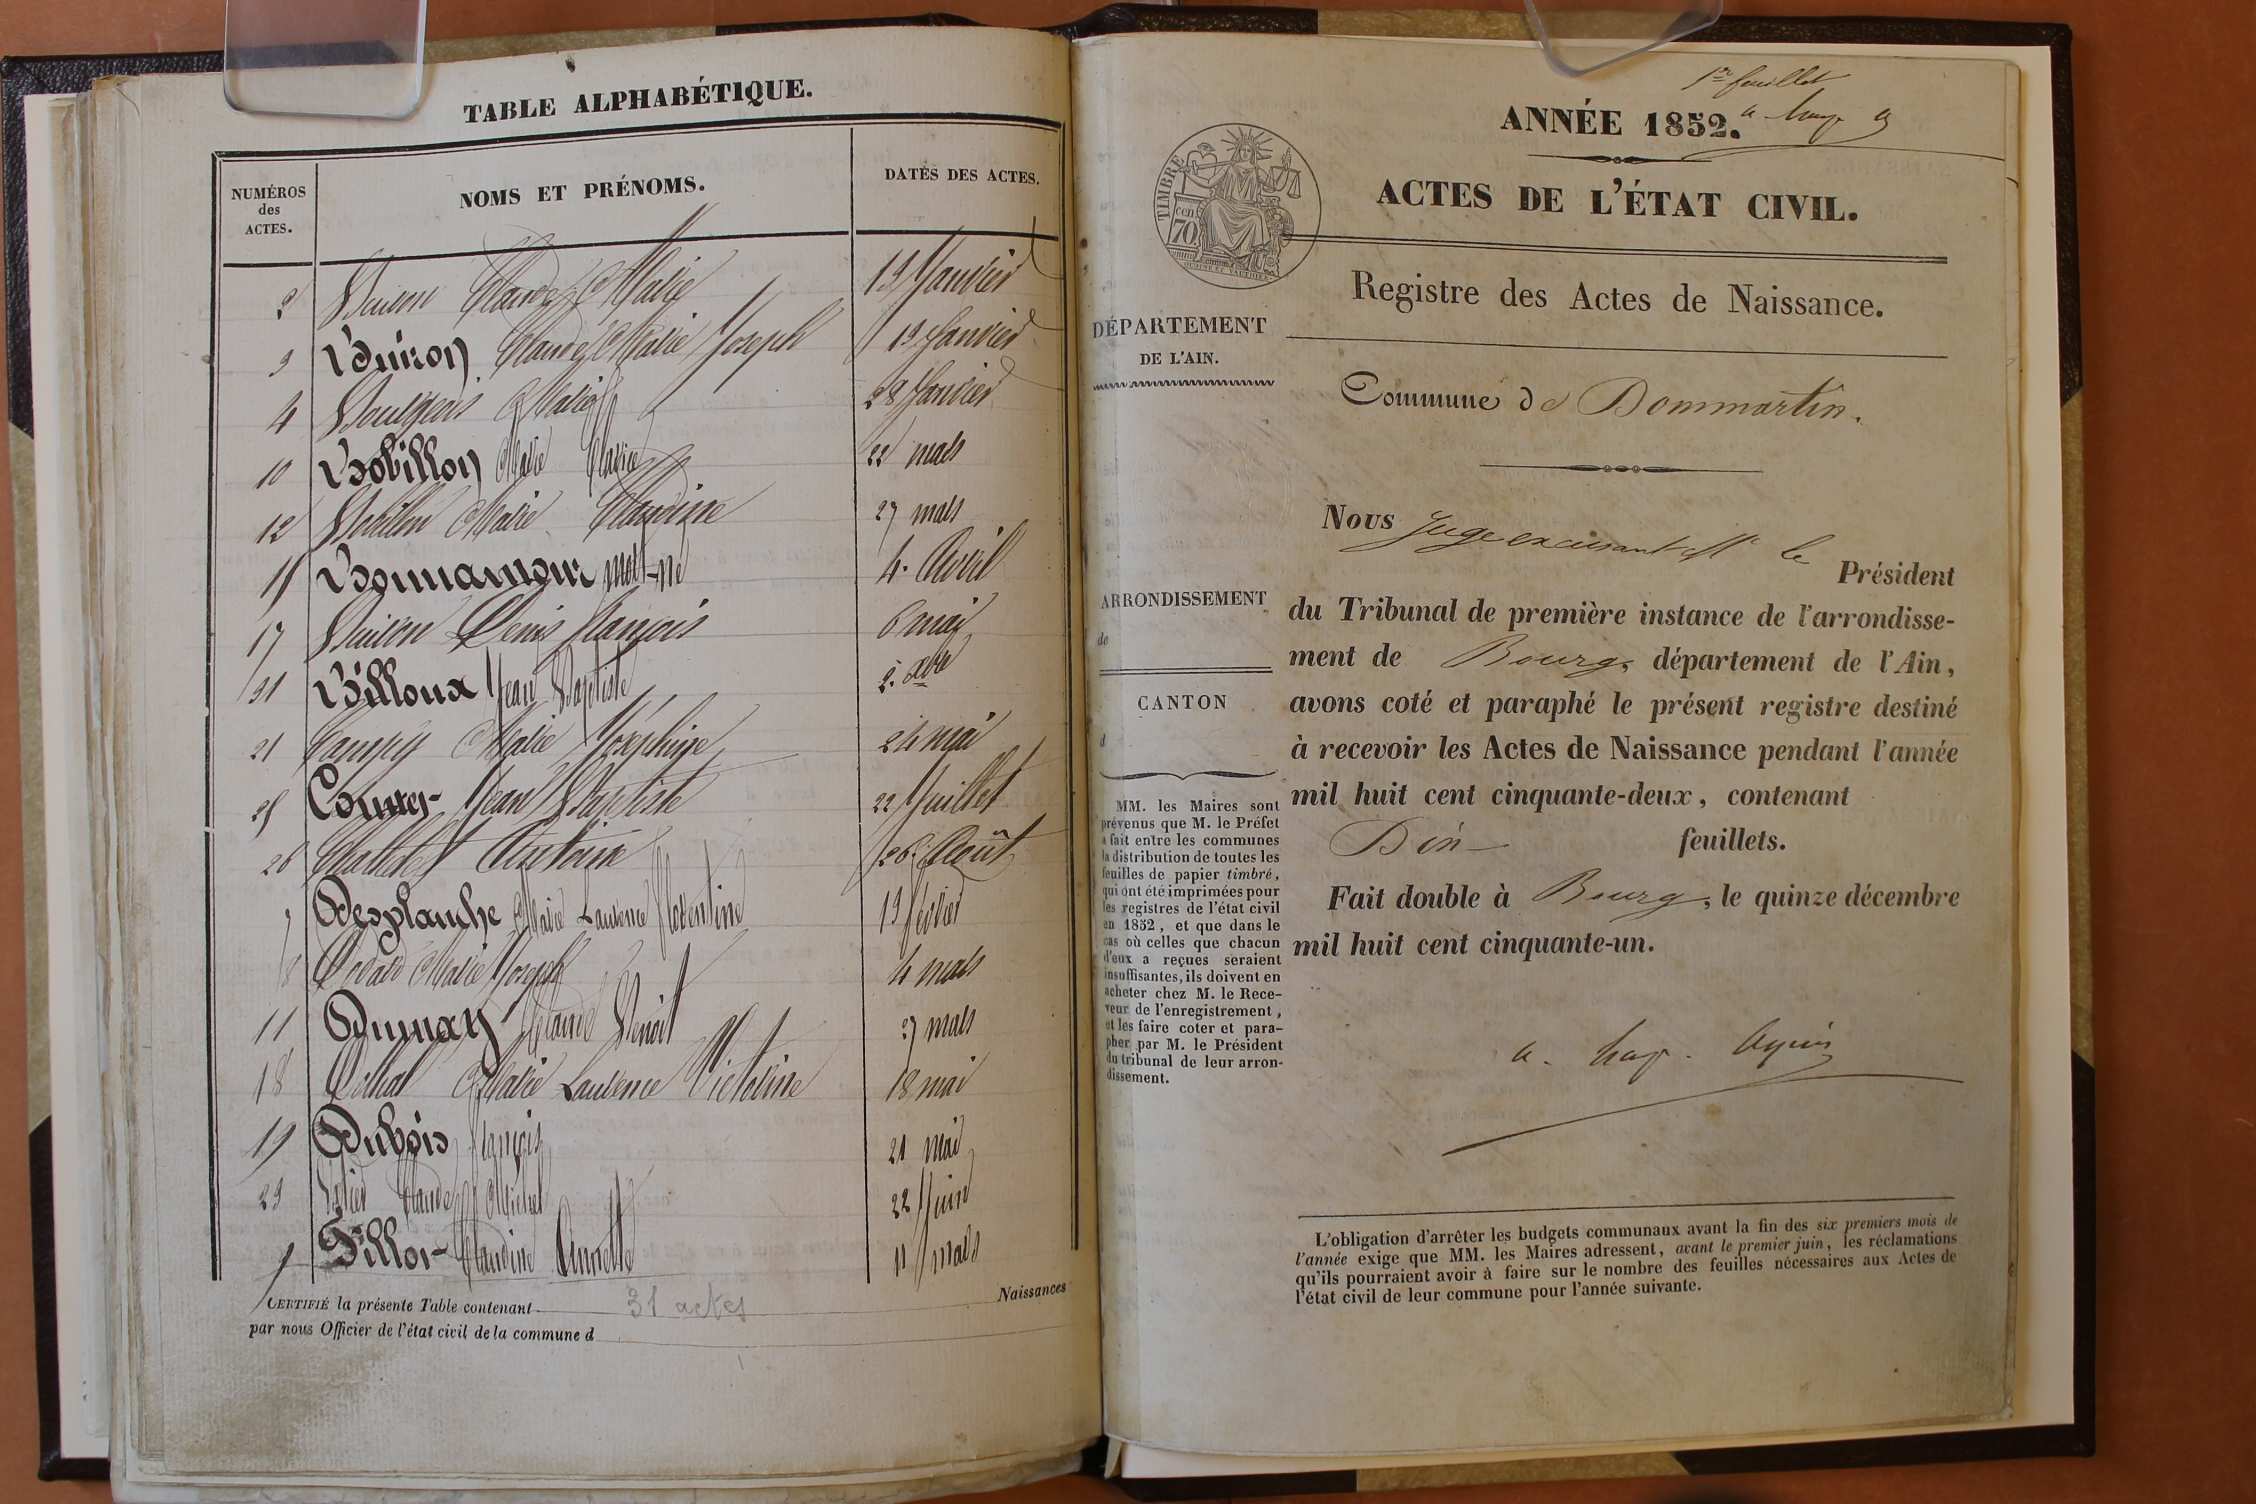 TABLE ALPHABÉTIQUE.
NUMÉROS
des
ACTES.
NOMS ET PRÉNOMS.
DATES DES ACTES.
2 Buiron Claude Marie 13 Janvier
3 Buiron Claude Marie Joseph 19 Janvier
4 Bourgeois Marie 28 Janvier
10 Bobillon Marie 22 mars
12 Bobillon Marie Claudine 27 mars
Bonnamour mort-né 4 Avril
17 Buiron Denis François 6 mai
31 Billoux Jean Baptiste 2 Xbre
21 Campy Marie Joséphine 24 mai
25 Jean Baptiste 22 Juillet
26 Antoine 26 Août
Desplanche Marie Laurence Florentine 19 février
8 Marie Joseph 4 mars
11 Claude Benoit 27 mars
18 Marie Laurence Victorine 18 mai
19 Dubois François 21 mai
23 Claude Michel 22 Juin
Fillot Claudine Annette 11 mars
CERTIFIÉ la présente Table contenant 31 actes Naissances
par nous Officier de l'état civil de la commune d
1er feuillet
ANNÉE 1852.
ACTES DE L'ÉTAT CIVIL.
TIMBRE
70
cen
Registre des Actes de Naissance.
DÉPARTEMENT
DE L'AIN.
Commune de Dommartin.
ARRONDISSEMENT
de
CANTON
d
MM. les Maires sont
prévenus que M. le Préfet
a fait entre les communes
la distribution de toutes les
feuilles de papier timbré,
qui ont été imprimées pour
les registres de l'état civil
en 1852, et que dans le
cas où celles que chacun
d'eux a reçues seraient
insuffisantes, ils doivent en
acheter chez M. le Rece-
veur de l'enregistrement,
et les faire coter et para-
pher par M. le Président
du tribunal de leur arron-
dissement.
Nous Juge excusant Mr le Président
du Tribunal de première instance de l'arrondisse-
ment de Bourg, département de l'Ain,
avons coté et paraphé le présent registre destiné
à recevoir les Actes de Naissance pendant l'année
mil huit cent cinquante-deux, contenant
Dix feuillets.
Fait double à Bourg, le quinze décembre
mil huit cent cinquante-un.
L'obligation d'arrêter les budgets communaux avant la fin des six premiers mois de
l'année exige que MM. les Maires adressent, avant le premier juin, les réclamations
qu'ils pourraient avoir à faire sur le nombre des feuilles nécessaires aux Actes de
l'état civil de leur commune pour l'année suivante.